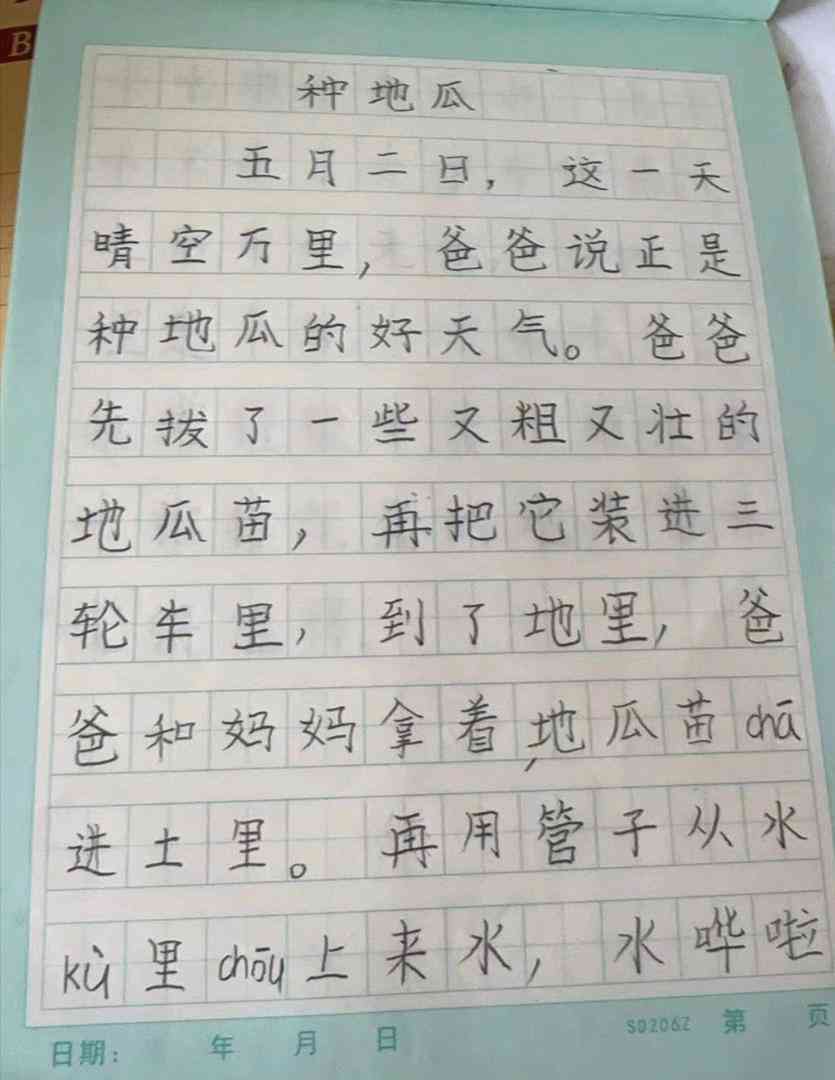 B
种地瓜
五月二日，这一天
晴空万里，爸爸说正是
种地瓜的好天气。爸爸
先拔了一些又粗又壮的
地瓜苗，再把它装进三
轮车里，到了地里，爸
爸和妈妈拿着地瓜苗chā
进土里。再用管子从水
kù里chōu上来水，水哗啦
日期： 年 月 日 SD206Z 第 页